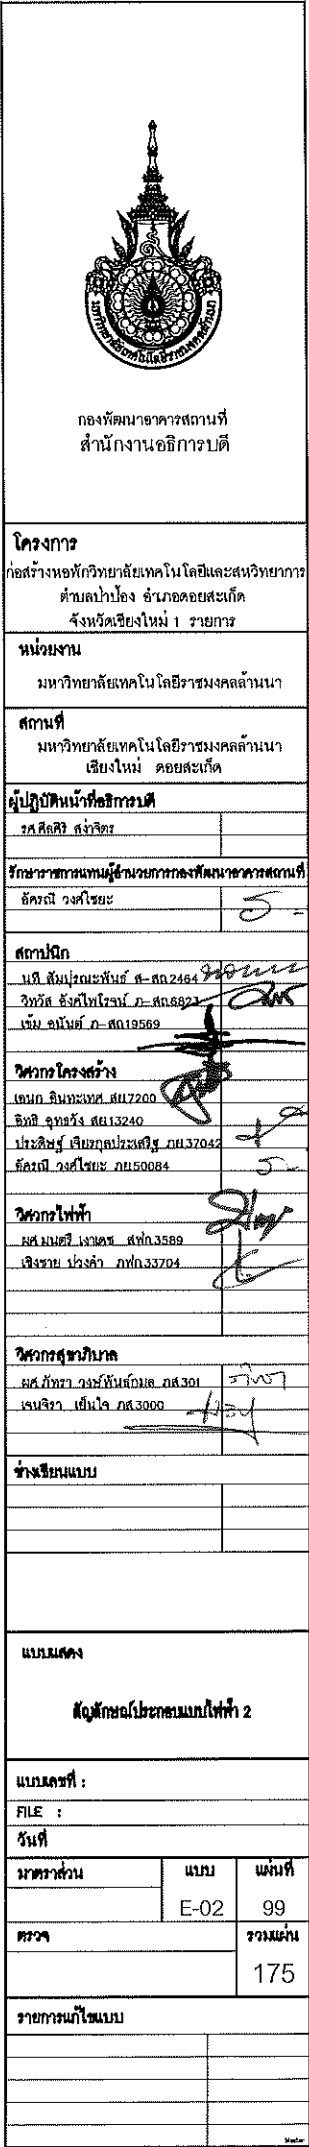 มหาวิทยาลัยเทคโนโลยีราชมงคลล้านนา
กองพัฒนาอาคารสถานที่
สำนักงานอธิการบดี
โครงการ
ก่อสร้างหอพักวิทยาลัยเทคโนโลยีและสหวิทยาการ
ตำบลป่าป้อง อำเภอดอยสะเก็ด
จังหวัดเชียงใหม่ 1 รายการ
หน่วยงาน
มหาวิทยาลัยเทคโนโลยีราชมงคลล้านนา
สถานที่
มหาวิทยาลัยเทคโนโลยีราชมงคลล้านนา
เชียงใหม่ ดอยสะเก็ด
ผู้ปฏิบัติหน้าที่อธิการบดี
รศ.ศีลศิริ สง่าจิตร
รักษาราชการแทนผู้อำนวยการกองพัฒนาอาคารสถานที่
อัครณี วงศ์ไชยะ
สถาปนิก
นที สัมปุรณะพันธ์ ส-สถ2464
วิทวัส อังศุไพโรจน์ ภ-สถ.6823
เข้ม อนันต์ ภ-สถ19569
วิศวกรโครงสร้าง
เอนก สย7200
อิทธิ สย13240
ประดิษฐ์ เจียรกุลประเสริฐ ภย37042
อัครณี วงศ์ไชยะ ภย50084
วิศวกรไฟฟ้า
ผศ.มนตรี เงาเดช สฟก3589
เชิงชาย ปวงคำ ภฟก33704
วิศวกรสุขาภิบาล
ผศ.ภัทรา วงษ์พันธ์กมล ภส301
เจนจิรา เย็นใจ ภส3000
ช่างเขียนแบบ
แบบแสดง
สัญลักษณ์ประกอบแบบไฟฟ้า 2
แบบเลขที่ :
FILE :
วันที่
มาตราส่วน แบบ แผ่นที่
E-02 99
ตรวจ รวมแผ่น
175
รายการแก้ไขแบบ
Master